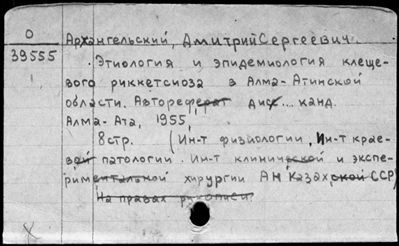 О
39555
Архангельский, Дмитрий Сергеевич.
Этиология и эпидемиология клеще-
вого риккетсиоза в Алма-Атинской
области. Автореферат дис... канд.
Алма-Ата, 1955,
8стр. (Ин-т физиологии, Ин-т крае-
вой патологии. Ин-т клинической и экспе-
риментальной хирургии АН Казахской ССР)
На правах рукописи.